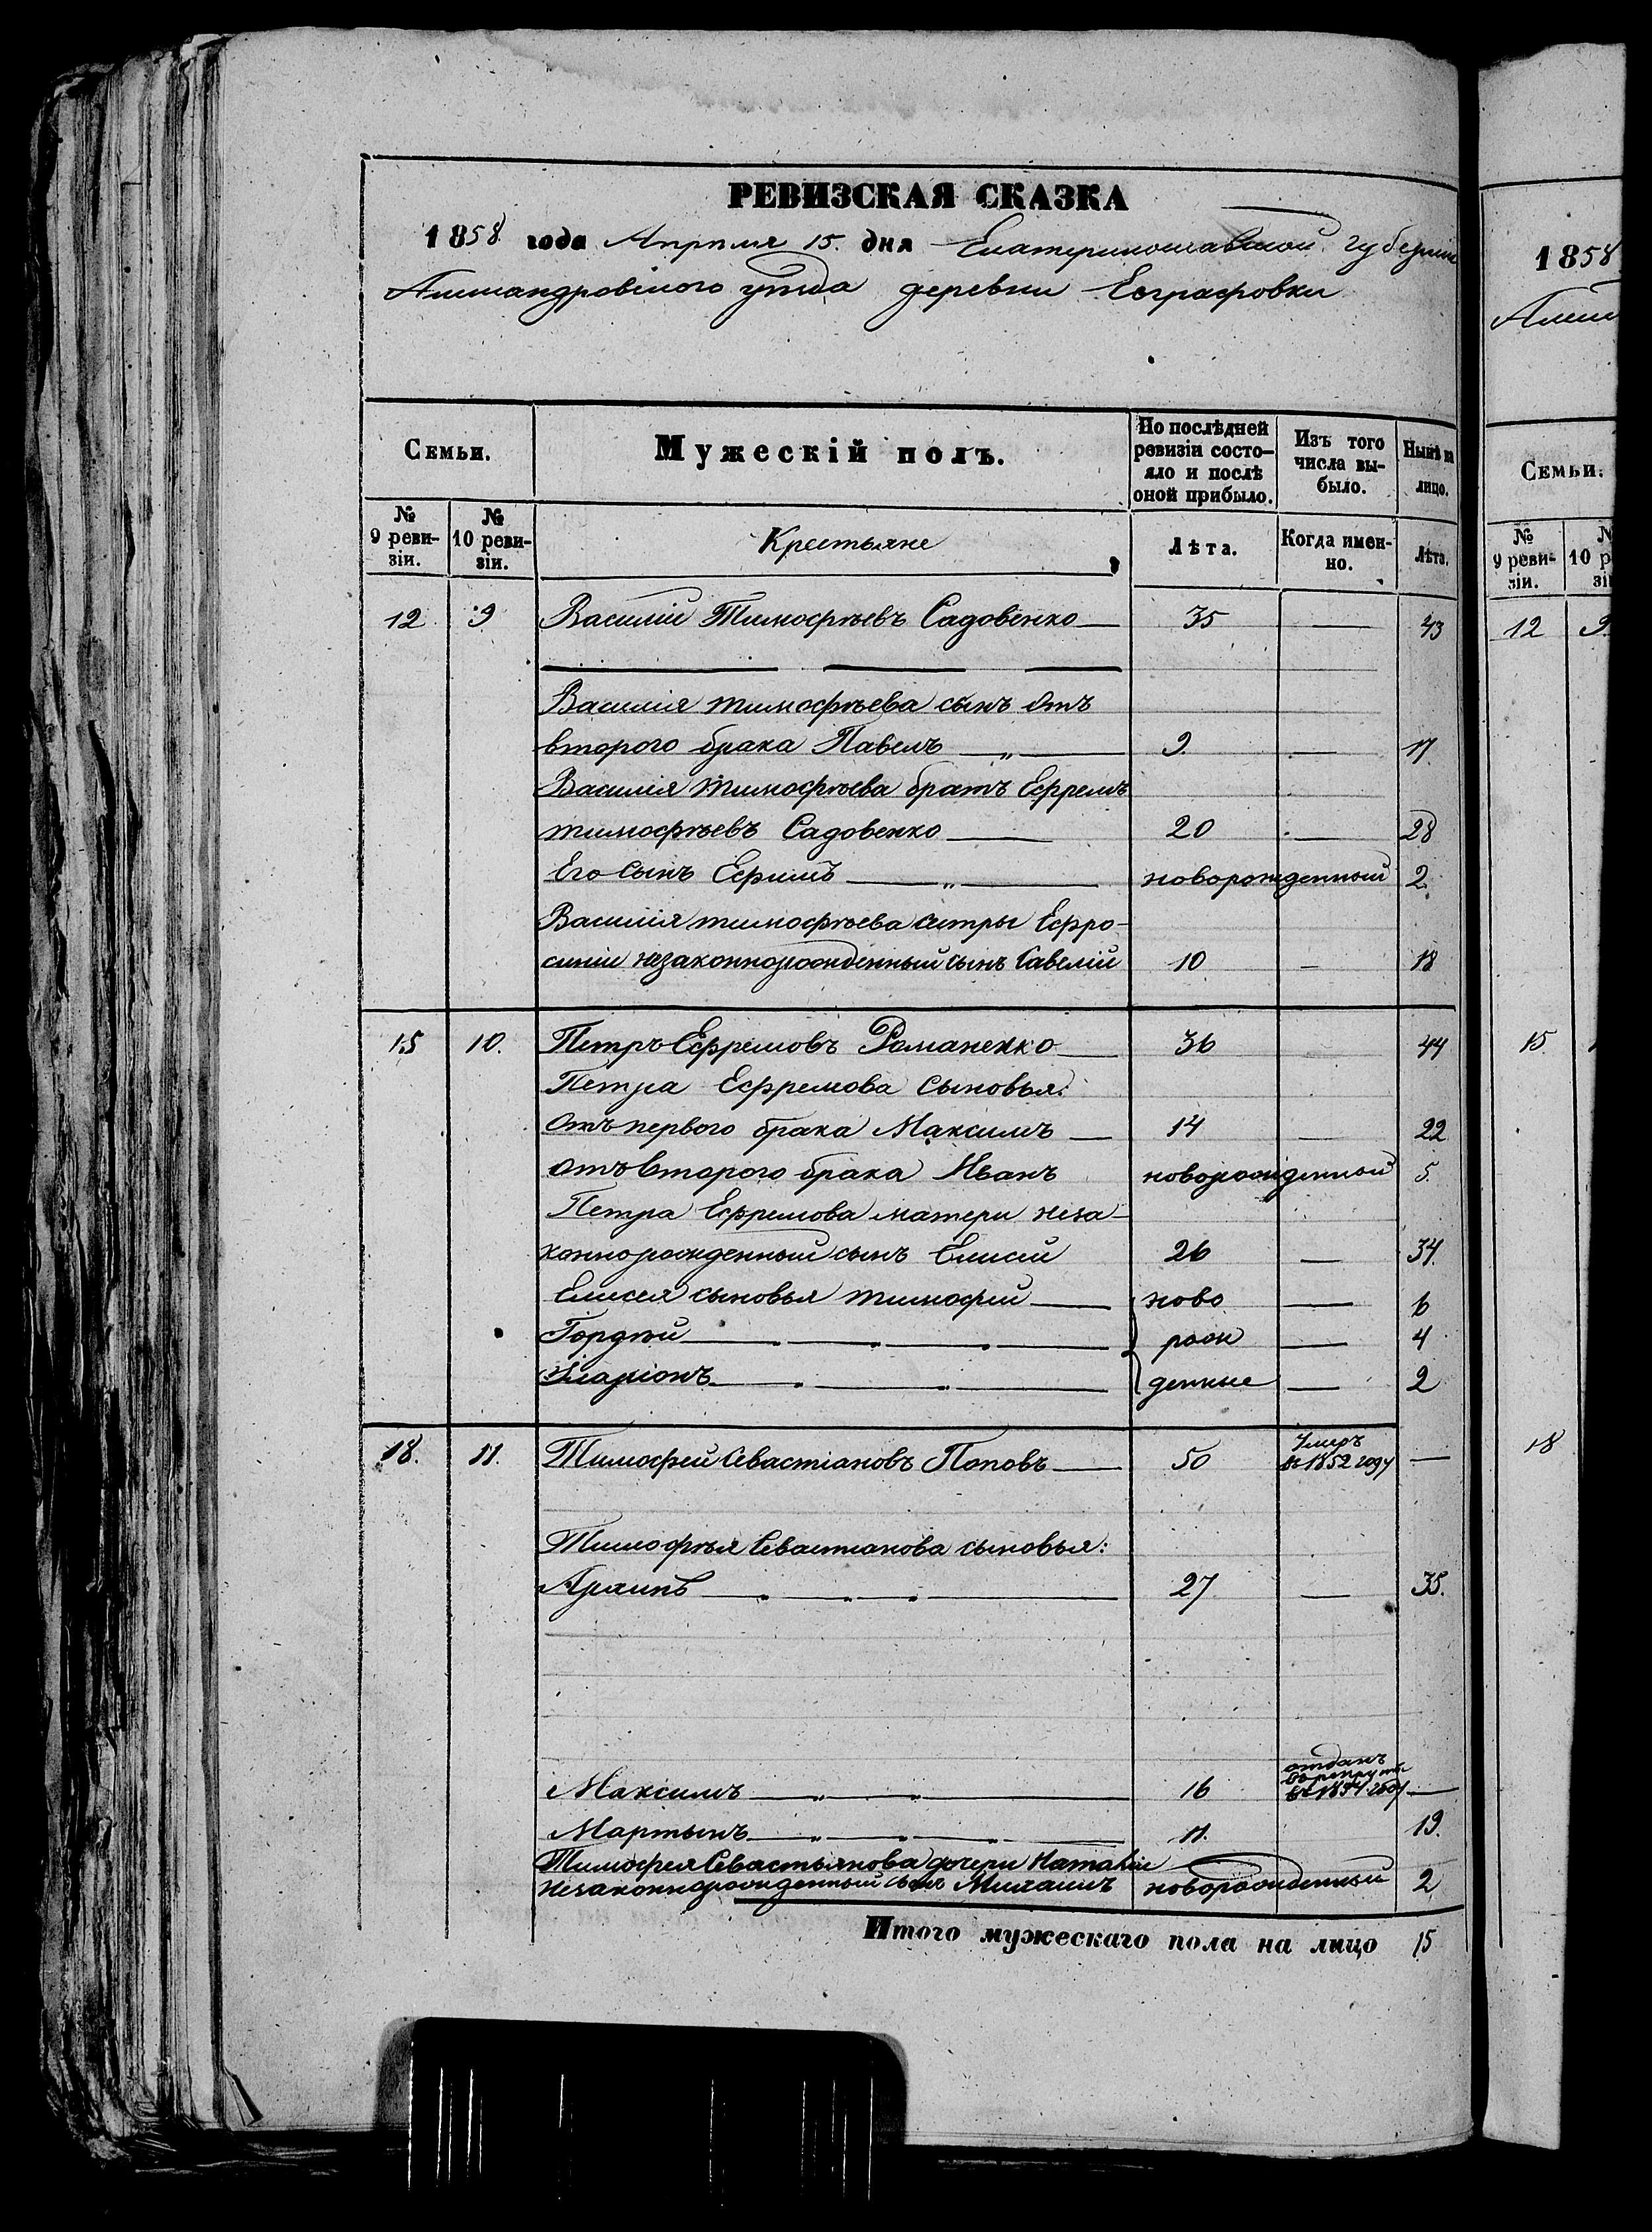 РЕВИЗСКАЯ СКАЗКА
1858 года Апреля 15. дня Екатеринославской губернии
Александровского уезда деревни Евграфовки
Семьи.
Мужескій полъ.
По послѣдней ревизіи состо-
яло и послѣ
оной прибыло.
Изъ того
числа вы-
было.
Нынѣ на
лицо.
№
9 реви-
зіи.
№
10 реви-
зіи.
Крестьяне
Лѣта.
Когда имен-
но.
Лѣта.
12 9 Василій Тимофѣевъ Садовенко — 35 — 43
Василія тимофѣева сынъ отъ
второго брака Павелъ — „ — 9 — 17.
Василія тимофѣева братъ Ефремъ
тимофѣевъ Садовенко — 20 — 28
Его сынъ Ефимъ — „ — новорожденный 2.
Василія тимофѣева сестры Ефро-
синіи незаконнорожденный сынъ Савелій 10 — 18
15 10. Петръ Ефремовъ Романенко — 36 44
Петра Ефремова сыновья:
отъ первого брака Максимъ — 14 — 22
отъ второго брака Иванъ новорожденной 5.
Петра Ефремова матери неза-
коннорожденный сынъ Елисей 26 — 34.
Елисея сыновья тимофей — ново — 6
Гордѣй — рож — 4
Иларіонъ — денные — 2
18. 11. Тимофей Севастіановъ Поповъ — 50 Умеръ
въ 1852 году —
Тимофѣя Севастианова сыновья:
Архипъ — 27 — 35.
Максимъ — „ — „ — 16 отданъ
въ рекруты
въ 1854 году —
Мартынъ — „ — „ — „ — 11. 19.
Тимофея Севастьянова дочери Наталіи
незаконнорожденный сынъ Михаилъ новорожденный 2
Итого мужескаго пола на лицо 15
1858
Семьи.
№
9 реви-
зіи.
10 р
12 9.
15.
18